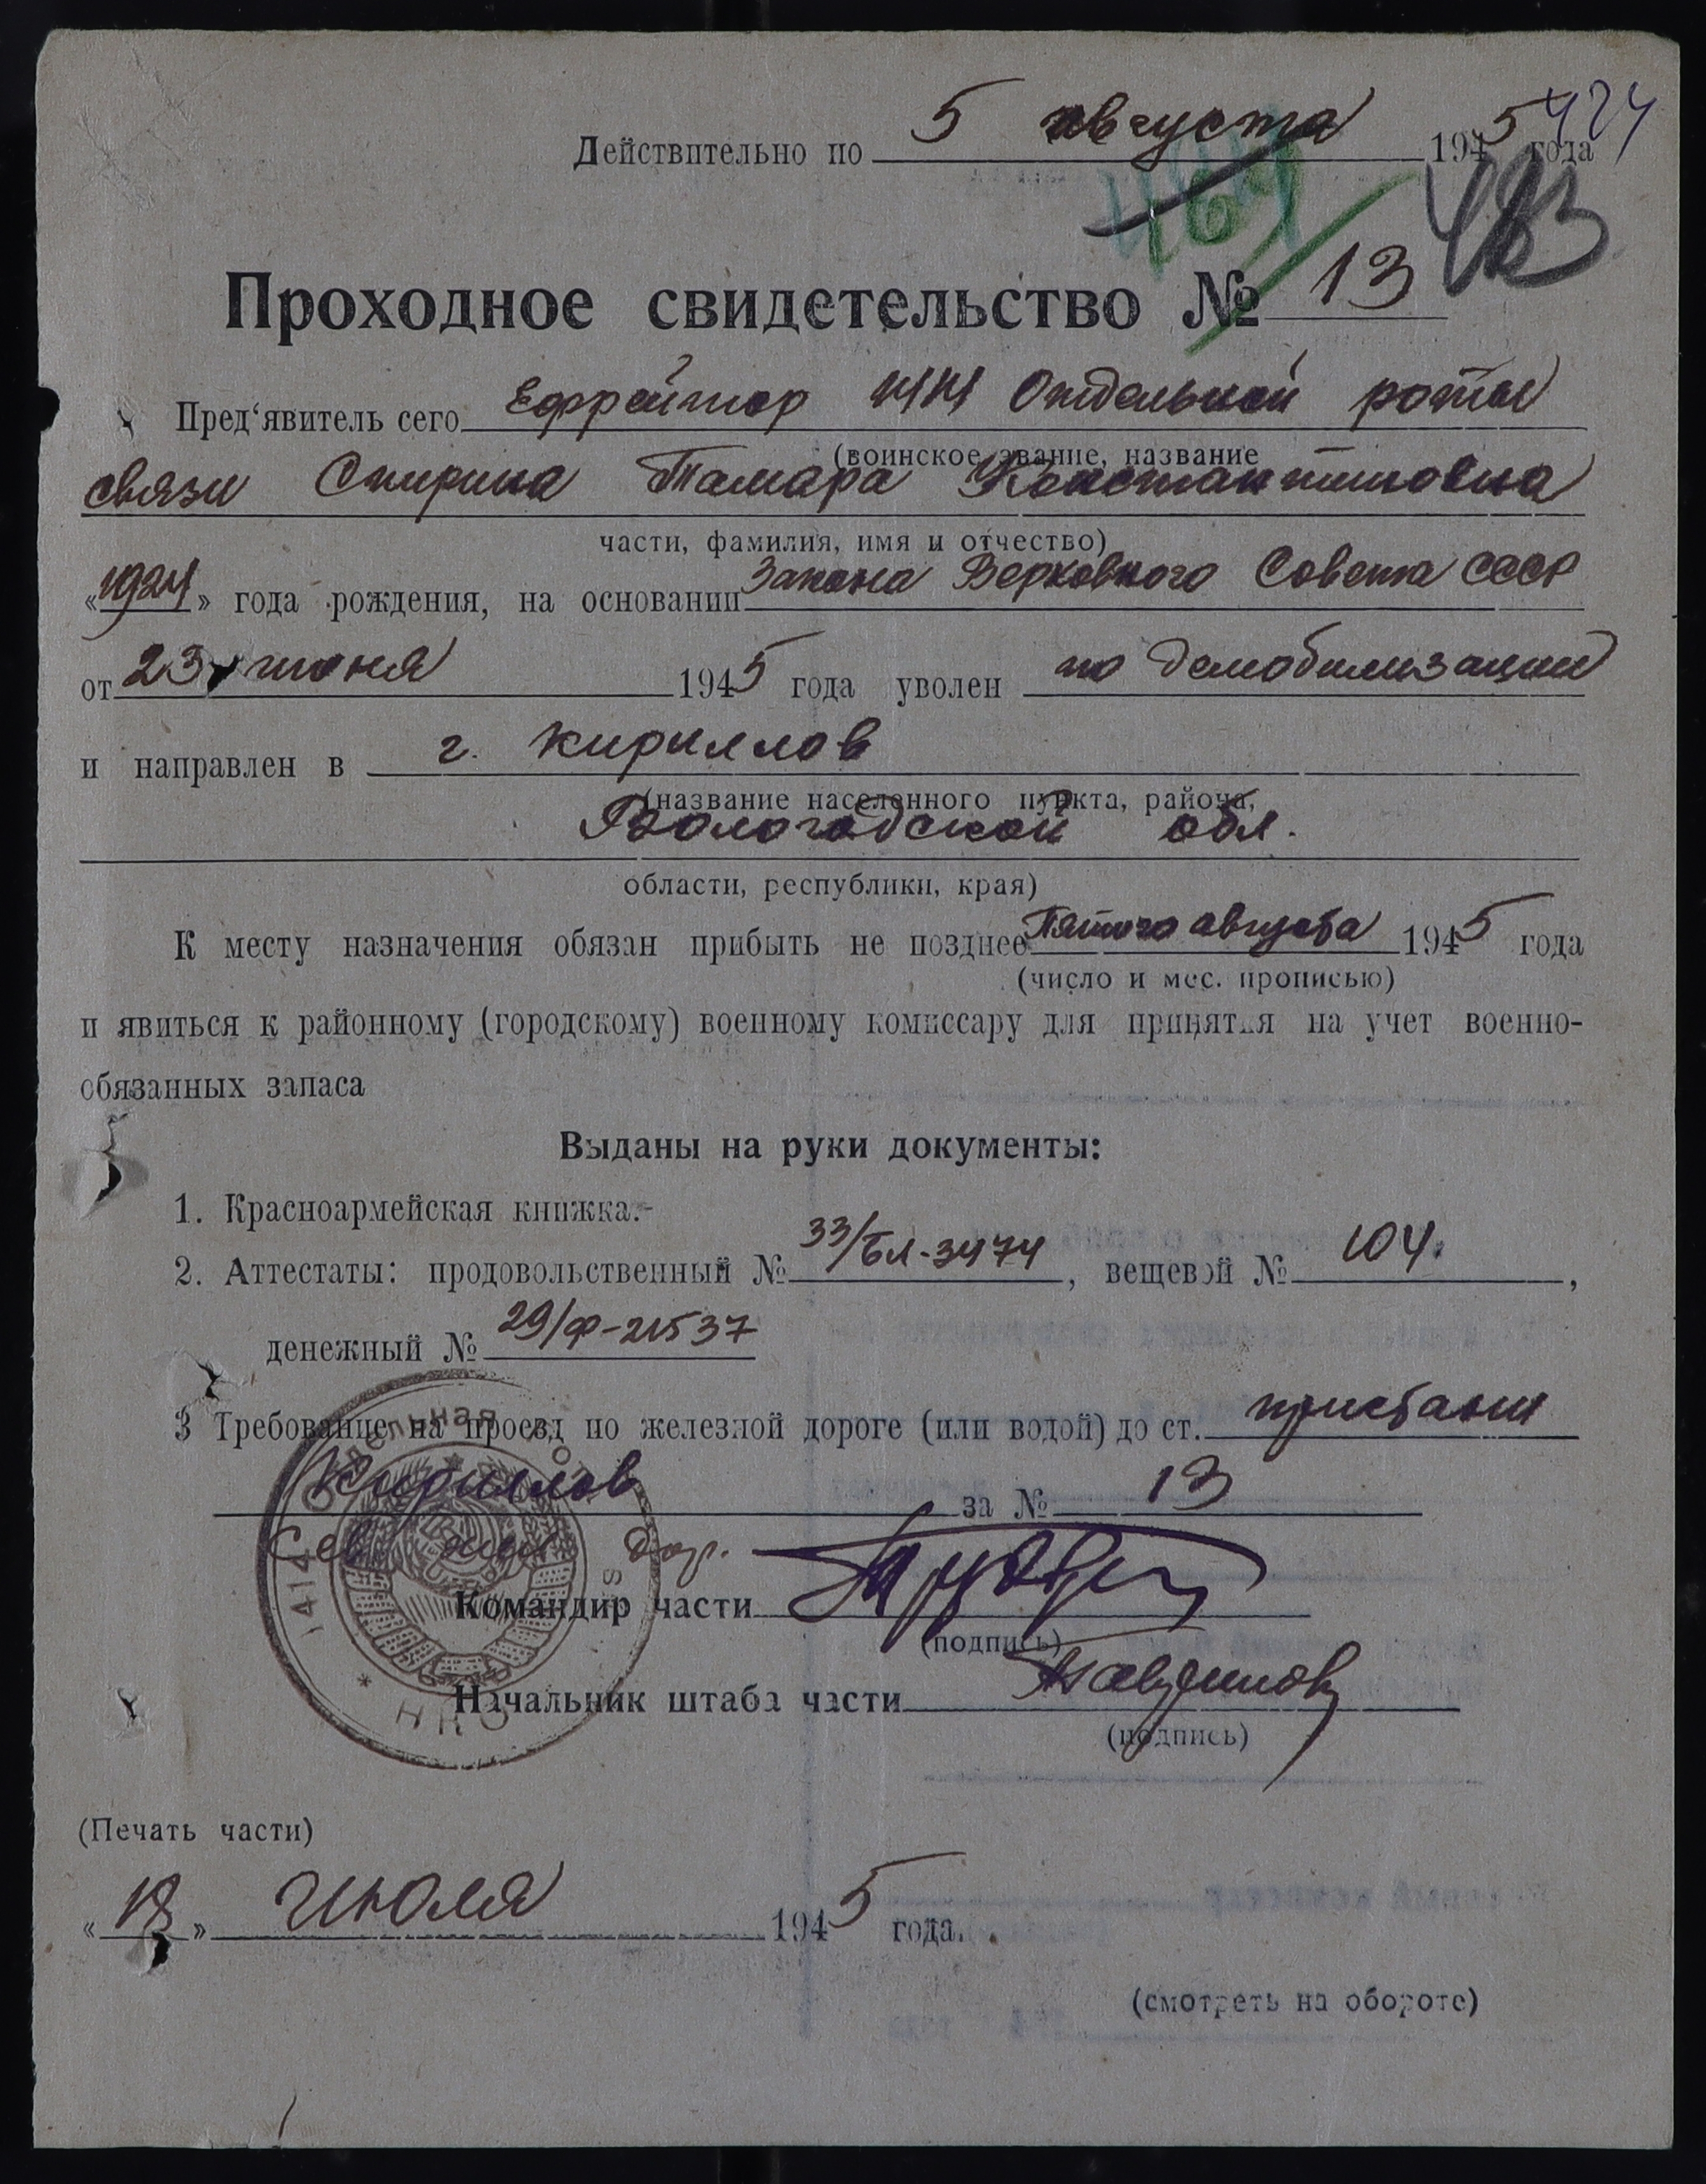 424
Действительно по 5 августа 1945 года
469
483
Проходное свидетельство № 13
Пред‘явитель сего Ефрейтор 1414 Отдельной роты
(воинское звание, название
связи Спирина Тамара Константиновна
части, фамилия, имя и отчество)
«1924» года рождения, на основании Закона Верховного Совета СССР
от 23 июня 1945 года уволен по демобилизации
и направлен в г. Кириллов
(название населенного пункта, района,
Вологодской обл.
области, республики, края)
К месту назначения обязан прибыть не позднее Пятого августа 1945 года
(число и мес. прописью)
и явиться к районному (городскому) военному комиссару для принятия на учет военно-
обязанных запаса
Выданы на руки документы:
1. Красноармейская книжка.-
2. Аттестаты: продовольственный № 33/бл-3474, вещевой № 104.,
денежный № 29/ф-21537
3 Требование на проезд по железной дороге (или водой) до ст. пристани
Кириллов за № 13
Сев. жел. дор.
Командир части
(подпись)
Начальник штаба части
(подпись)
1414 Отдельная НКО
(Печать части)
«18» Июля 1945 года.
(смотреть на обороте)